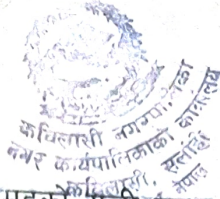 कविलासी नगरपालिका
नगर कार्यपालिकाको कार्यालय
कविलासी, सर्लाही
नेपाल